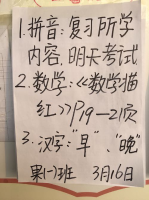 1.拼音:复习所学
内容,明天考试
2.数学:《数学描
红》P19—21页
3.汉字:"早"、"晚"
果(一)班 3月16日